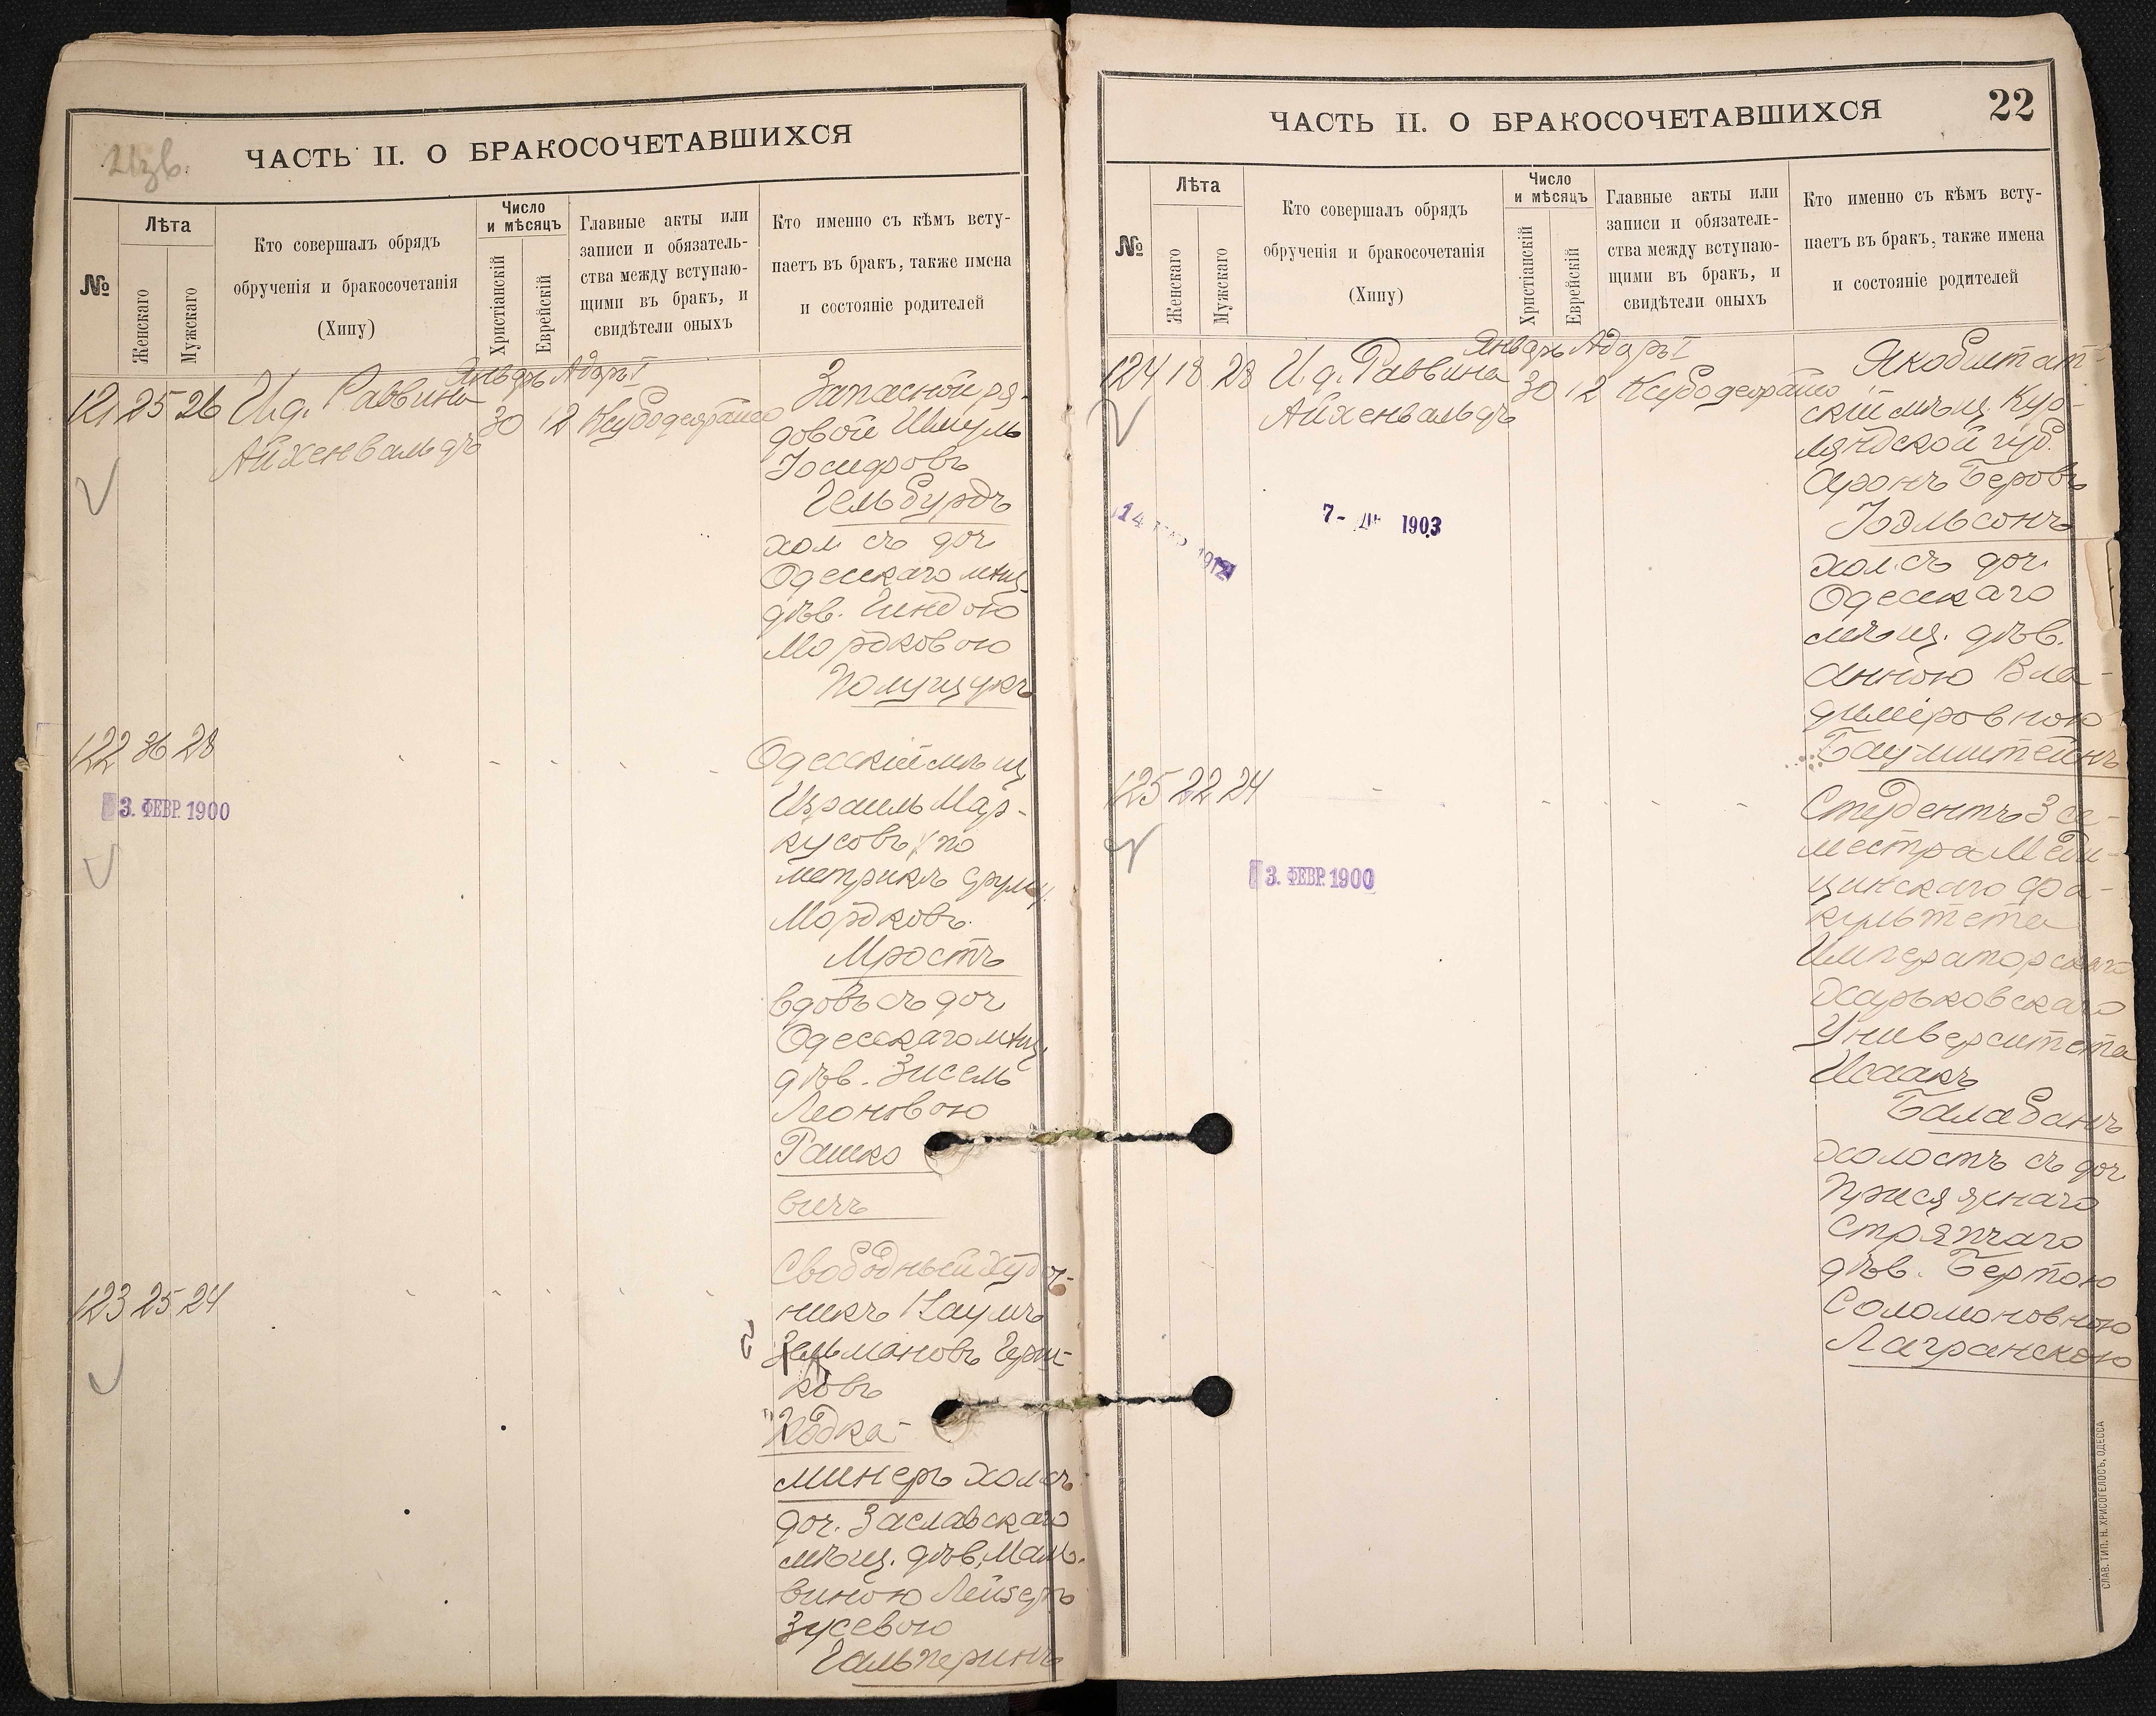 Изв.
ЧАСТЬ II. О БРАКОСОЧЕТАВШИХСЯ
№
Лѣта
Женскаго
Мужскаго
Кто совершалъ обрядъ
обрученія и бракосочетанія
(Хипу)
Число
и мѣсяцъ
Христіанскій
Еврейскій
Главные акты или
записи и обязатель-
ства между вступаю-
щими въ бракъ, и
свидѣтели оныхъ
Кто именно съ кѣмъ всту-
паетъ въ бракъ, также имена
и состояніе родителей
Январь Адаръ I
121 25 26 И.д. Раввина 30 12
Айхенвальдъ
Запасной ря-
довой Шмуль
Іосифовъ
Гельбурдъ
хол съ доч
Одесскаго мѣщ
дѣв. Гиндою
Мордковою
Полущукъ
122 36 28
3. ФЕВР. 1900
Одесскій мѣщ
Израиль Мар-
кусовъ по
метрикѣ
Мордковъ
Мростъ
вдовъ съ доч
Одесскаго мѣщ
дѣв. Зисель
Леоновою
Рашко
вичъ
123 25 24
Свободный худож-
никъ Наумъ
Зельмановъ Герш-
ковъ
Кодка-
минеръ хол съ
доч. Заславскаго
мѣщ. дѣв. Маль-
виною Лейзеръ
Зусевою
Гальперинъ
ЧАСТЬ II. О БРАКОСОЧЕТАВШИХСЯ
22
№
Лѣта
Женскаго
Мужскаго
Кто совершалъ обрядъ
обрученія и бракосочетанія
(Хипу)
Число
и мѣсяцъ
Христіанскій
Еврейскій
Главные акты или
записи и обязатель-
ства между вступаю-
щими въ бракъ, и
свидѣтели оныхъ
Кто именно съ кѣмъ всту-
паетъ въ бракъ, также имена
и состояніе родителей
Январь Адаръ I
124 18 28 И.д. Раввина 30 12
Айхенвальдъ
7- 1903
14 1912
Якобштат-
скій мѣщ. Кур-
ляндской губ.
Аронъ Беровъ
Іодльсонъ
хол. съ доч.
Одесскаго
мѣщ. дѣв.
Анною Вла-
диміровною
Баумштейнъ
125 22 24
3. ФЕВР. 1900
Студентъ 3 се-
местра Меди-
цинскаго фа-
культета
Императорскаго
Харьковскаго
Университета
Исаакъ
Балабанъ
холостъ съ доч
Присяжнаго
Стряпчаго
дѣв. Бертою
Соломоновною
Лагранскою
СЛАВ. ТИП. Н. ХРИСОГЕЛОСЪ, ОДЕССА